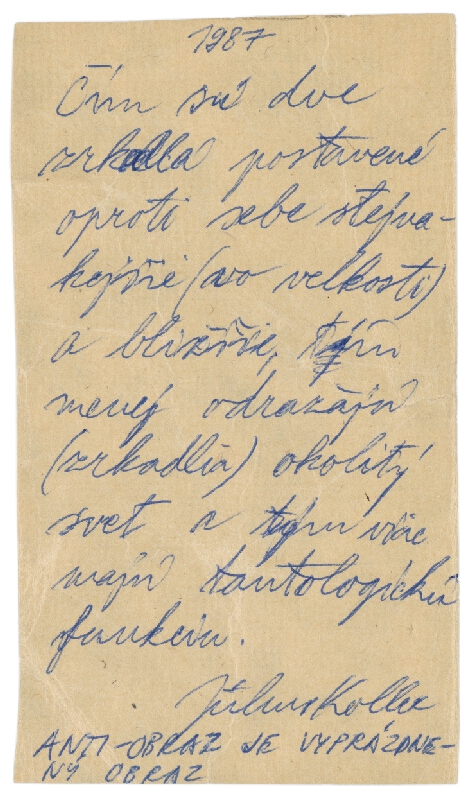 1987
Čím sú dve
zrkadlá postavené
oproti sebe stejna-
kejšie (vo velkosti)
a bližšie, tým
menej odrazajú
(zrkadlia) okolitý
svet a tým viac
majú tautologickú
funkciu.
Július Koller
ANTI-OBRAZ JE VYPRÁZDNE-
NÝ OBRAZ